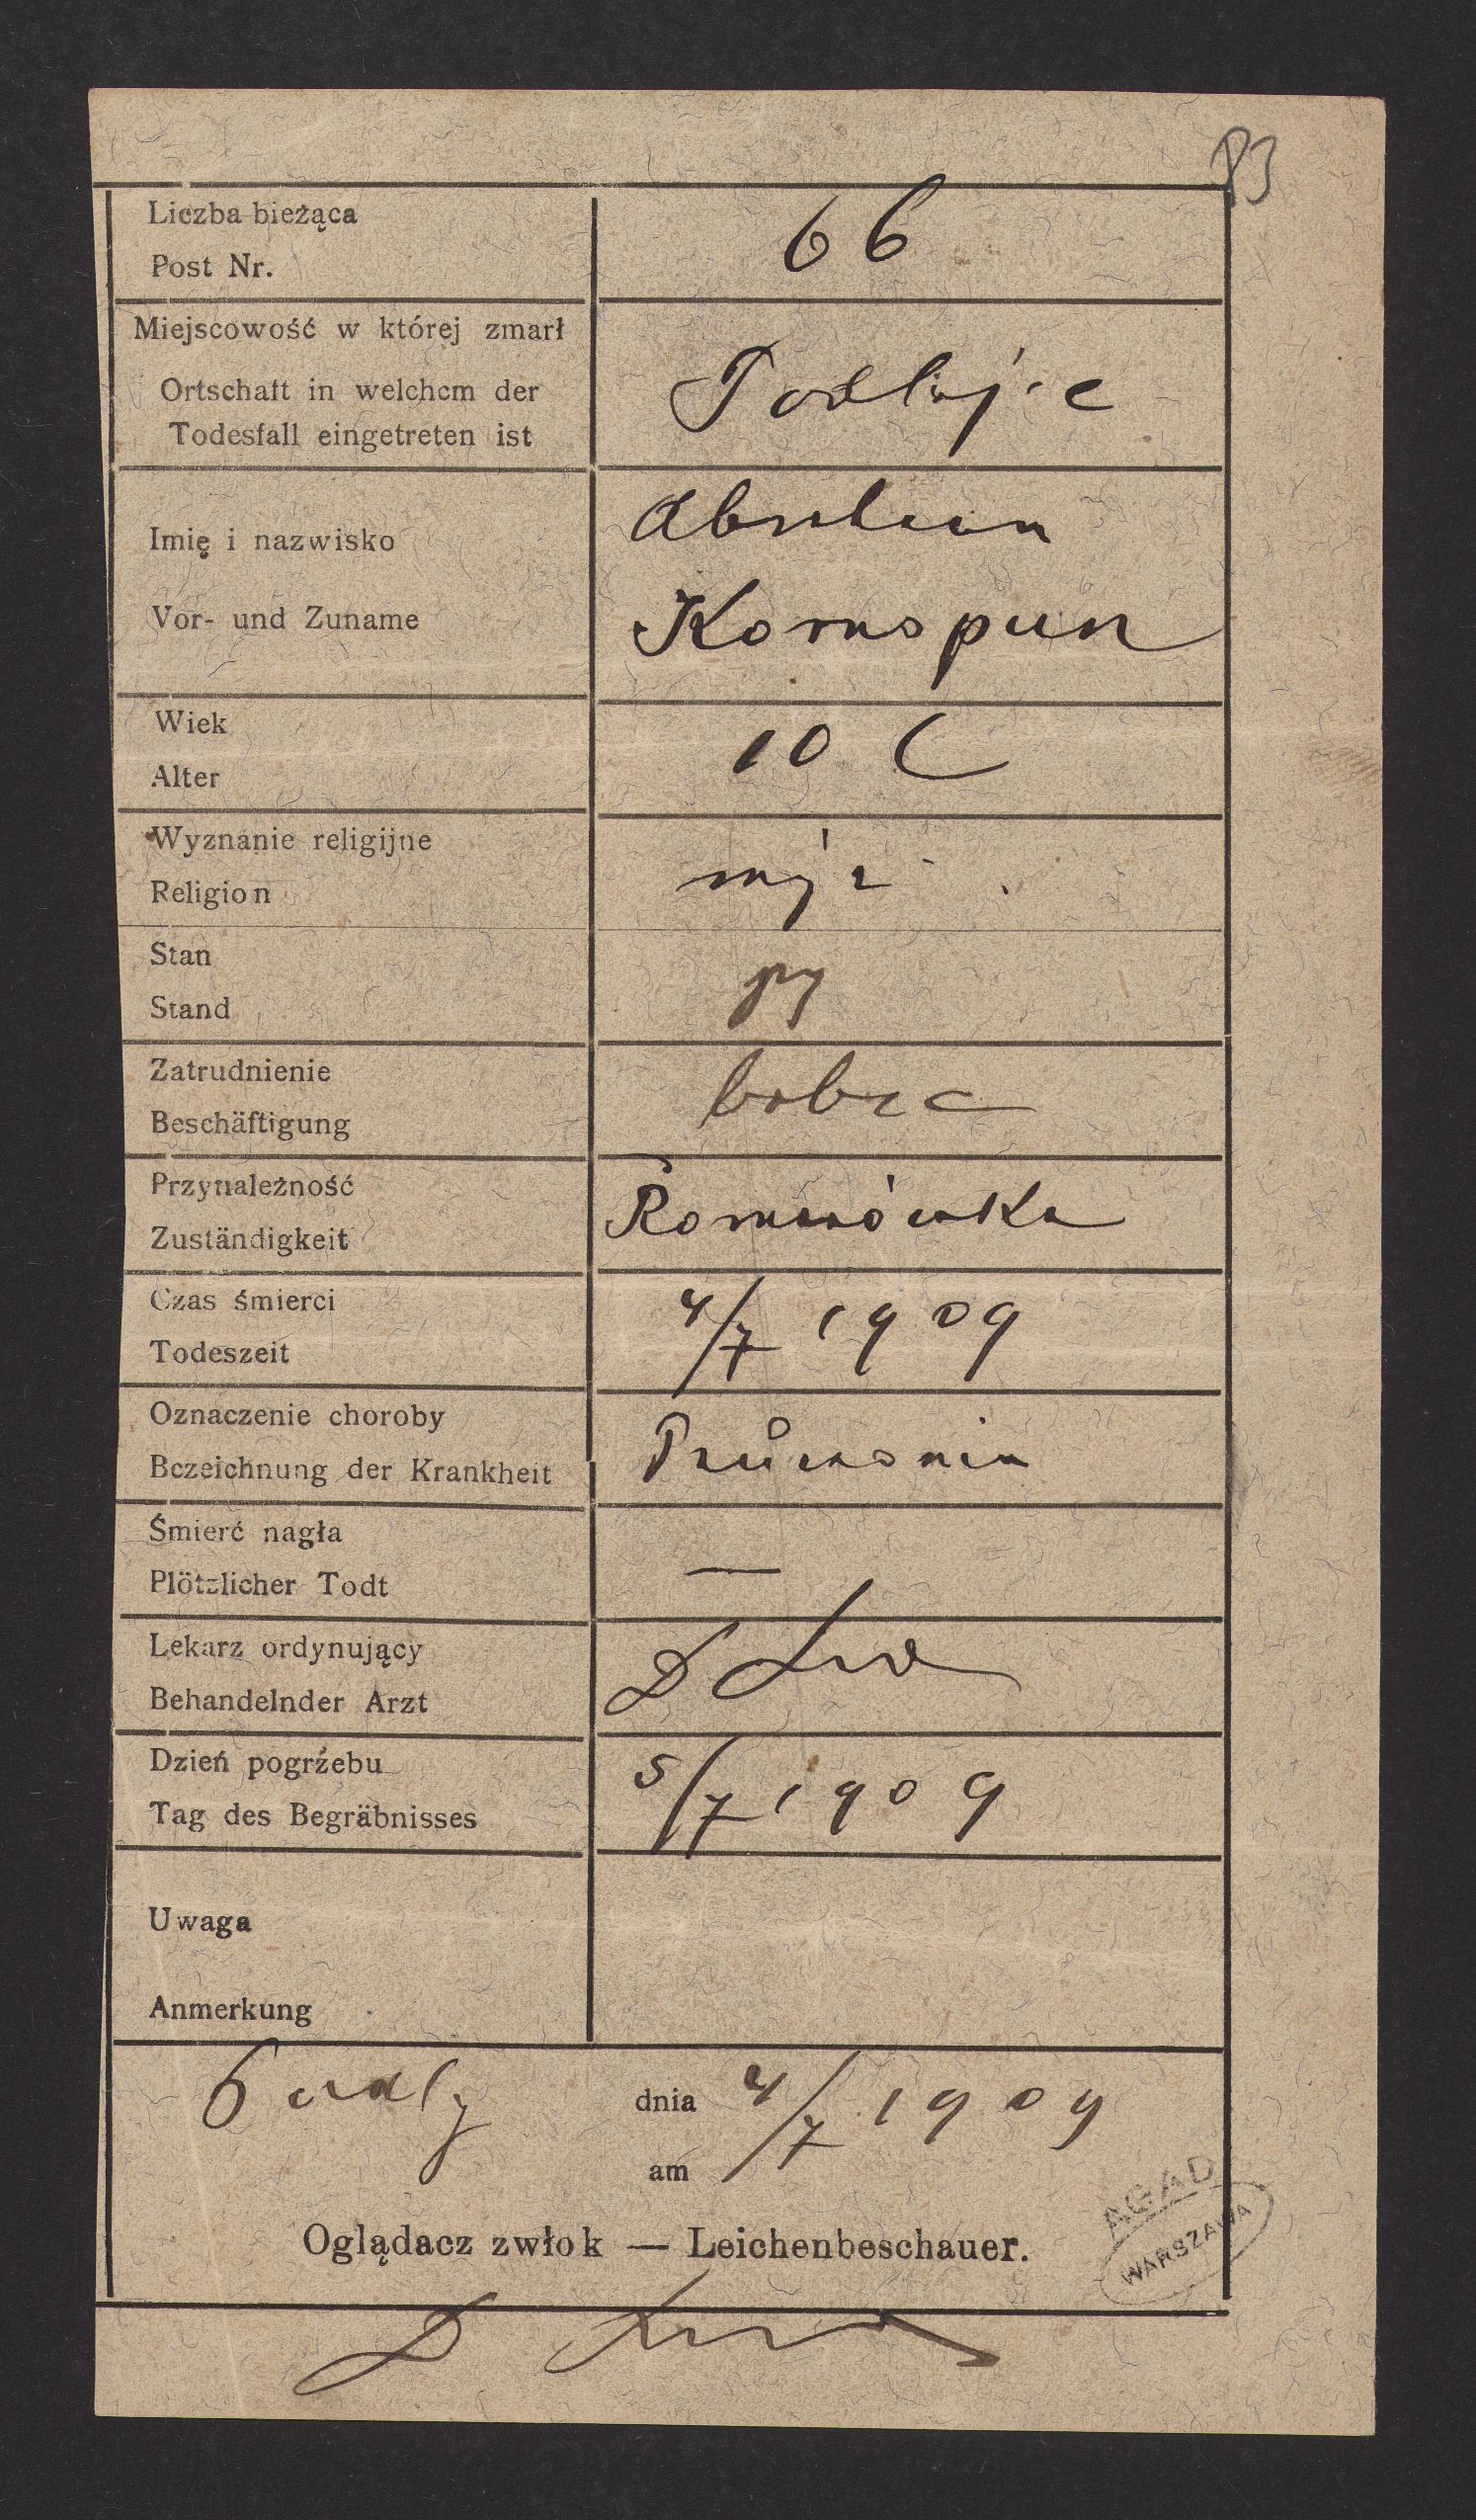 83
Liczba bieżąca
Post Nr.
66
Miejscowość w której zmarł
Ortschaft in welchem der
Todesfall eingetreten ist
Abraham
Imię i nazwisko
Vor- und Zuname
Kornspun
Wiek
Alter
10
Wyznanie religijne
Religion
mojż
Stan
Stand
Zatrudnienie
Beschäftigung
Przynależność
Zuständigkeit
Romanówka
Czas śmierci
Todeszeit
4/7 1909
Oznaczenie choroby
Bezeichnung der Krankheit
Pneumonia
Śmierć nagła
Plötzlicher Todt
—
Lekarz ordynujący
Behandelnder Arzt
D
Dzień pogrzebu
Tag des Begräbnisses
5/7 1909
Uwaga
Anmerkung
dnia 4/7 1909
am
AGAD
WARSZAWA
Oglądacz zwłok — Leichenbeschauer.
D